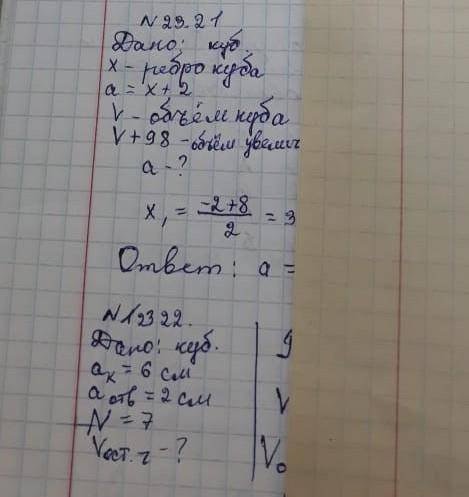 N 23.21
Дано: куб.
x - ребро куба
a = x + 2
V - объём куба
V + 98 - объём увелич
a - ?
x₁ = \frac{-2+8}{2} = 3
Ответ: a =
N 12322.
Дано: куб.
aк = 6 см
a отв = 2 см
N = 7
Vост. ч - ?
V
V₀